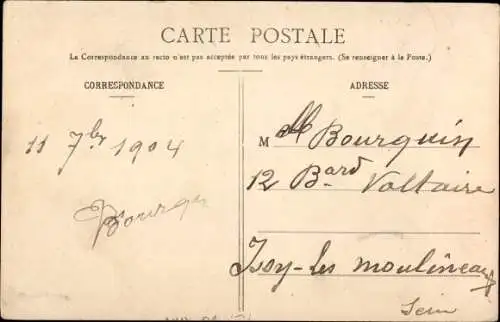 CARTE POSTALE
La Correspondance au recto n'est pas acceptée par tous les pays étrangers. (Se renseigner à la Poste.)
CORRESPONDANCE
ADRESSE
11 7bre 1904
M Bourquin
12 Bard Voltaire
Issy-les moulineaux
Seine